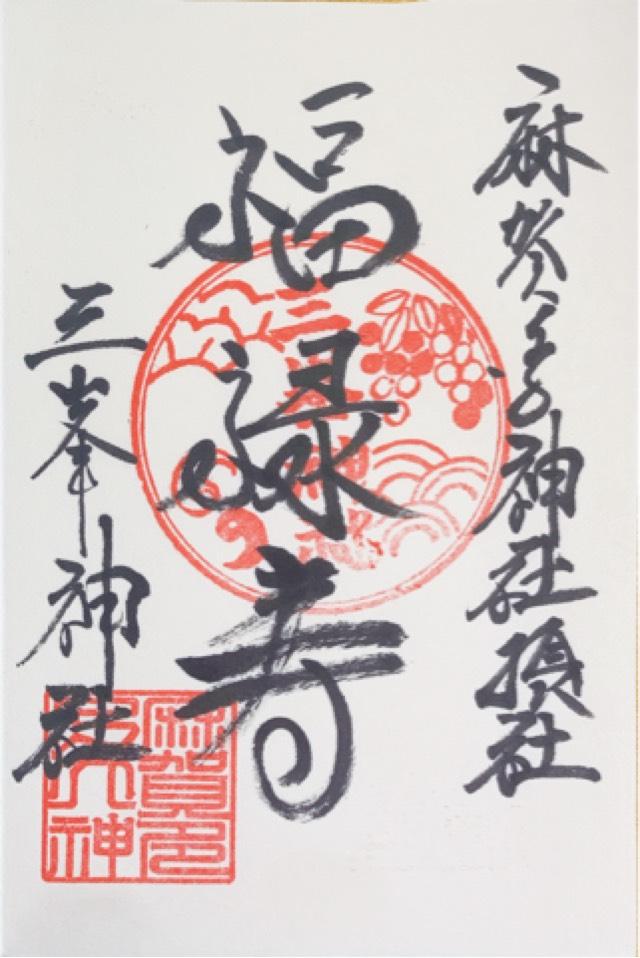 麻賀多神社摂社
福禄寿
三峯神社
三峯神社
麻賀多
大神